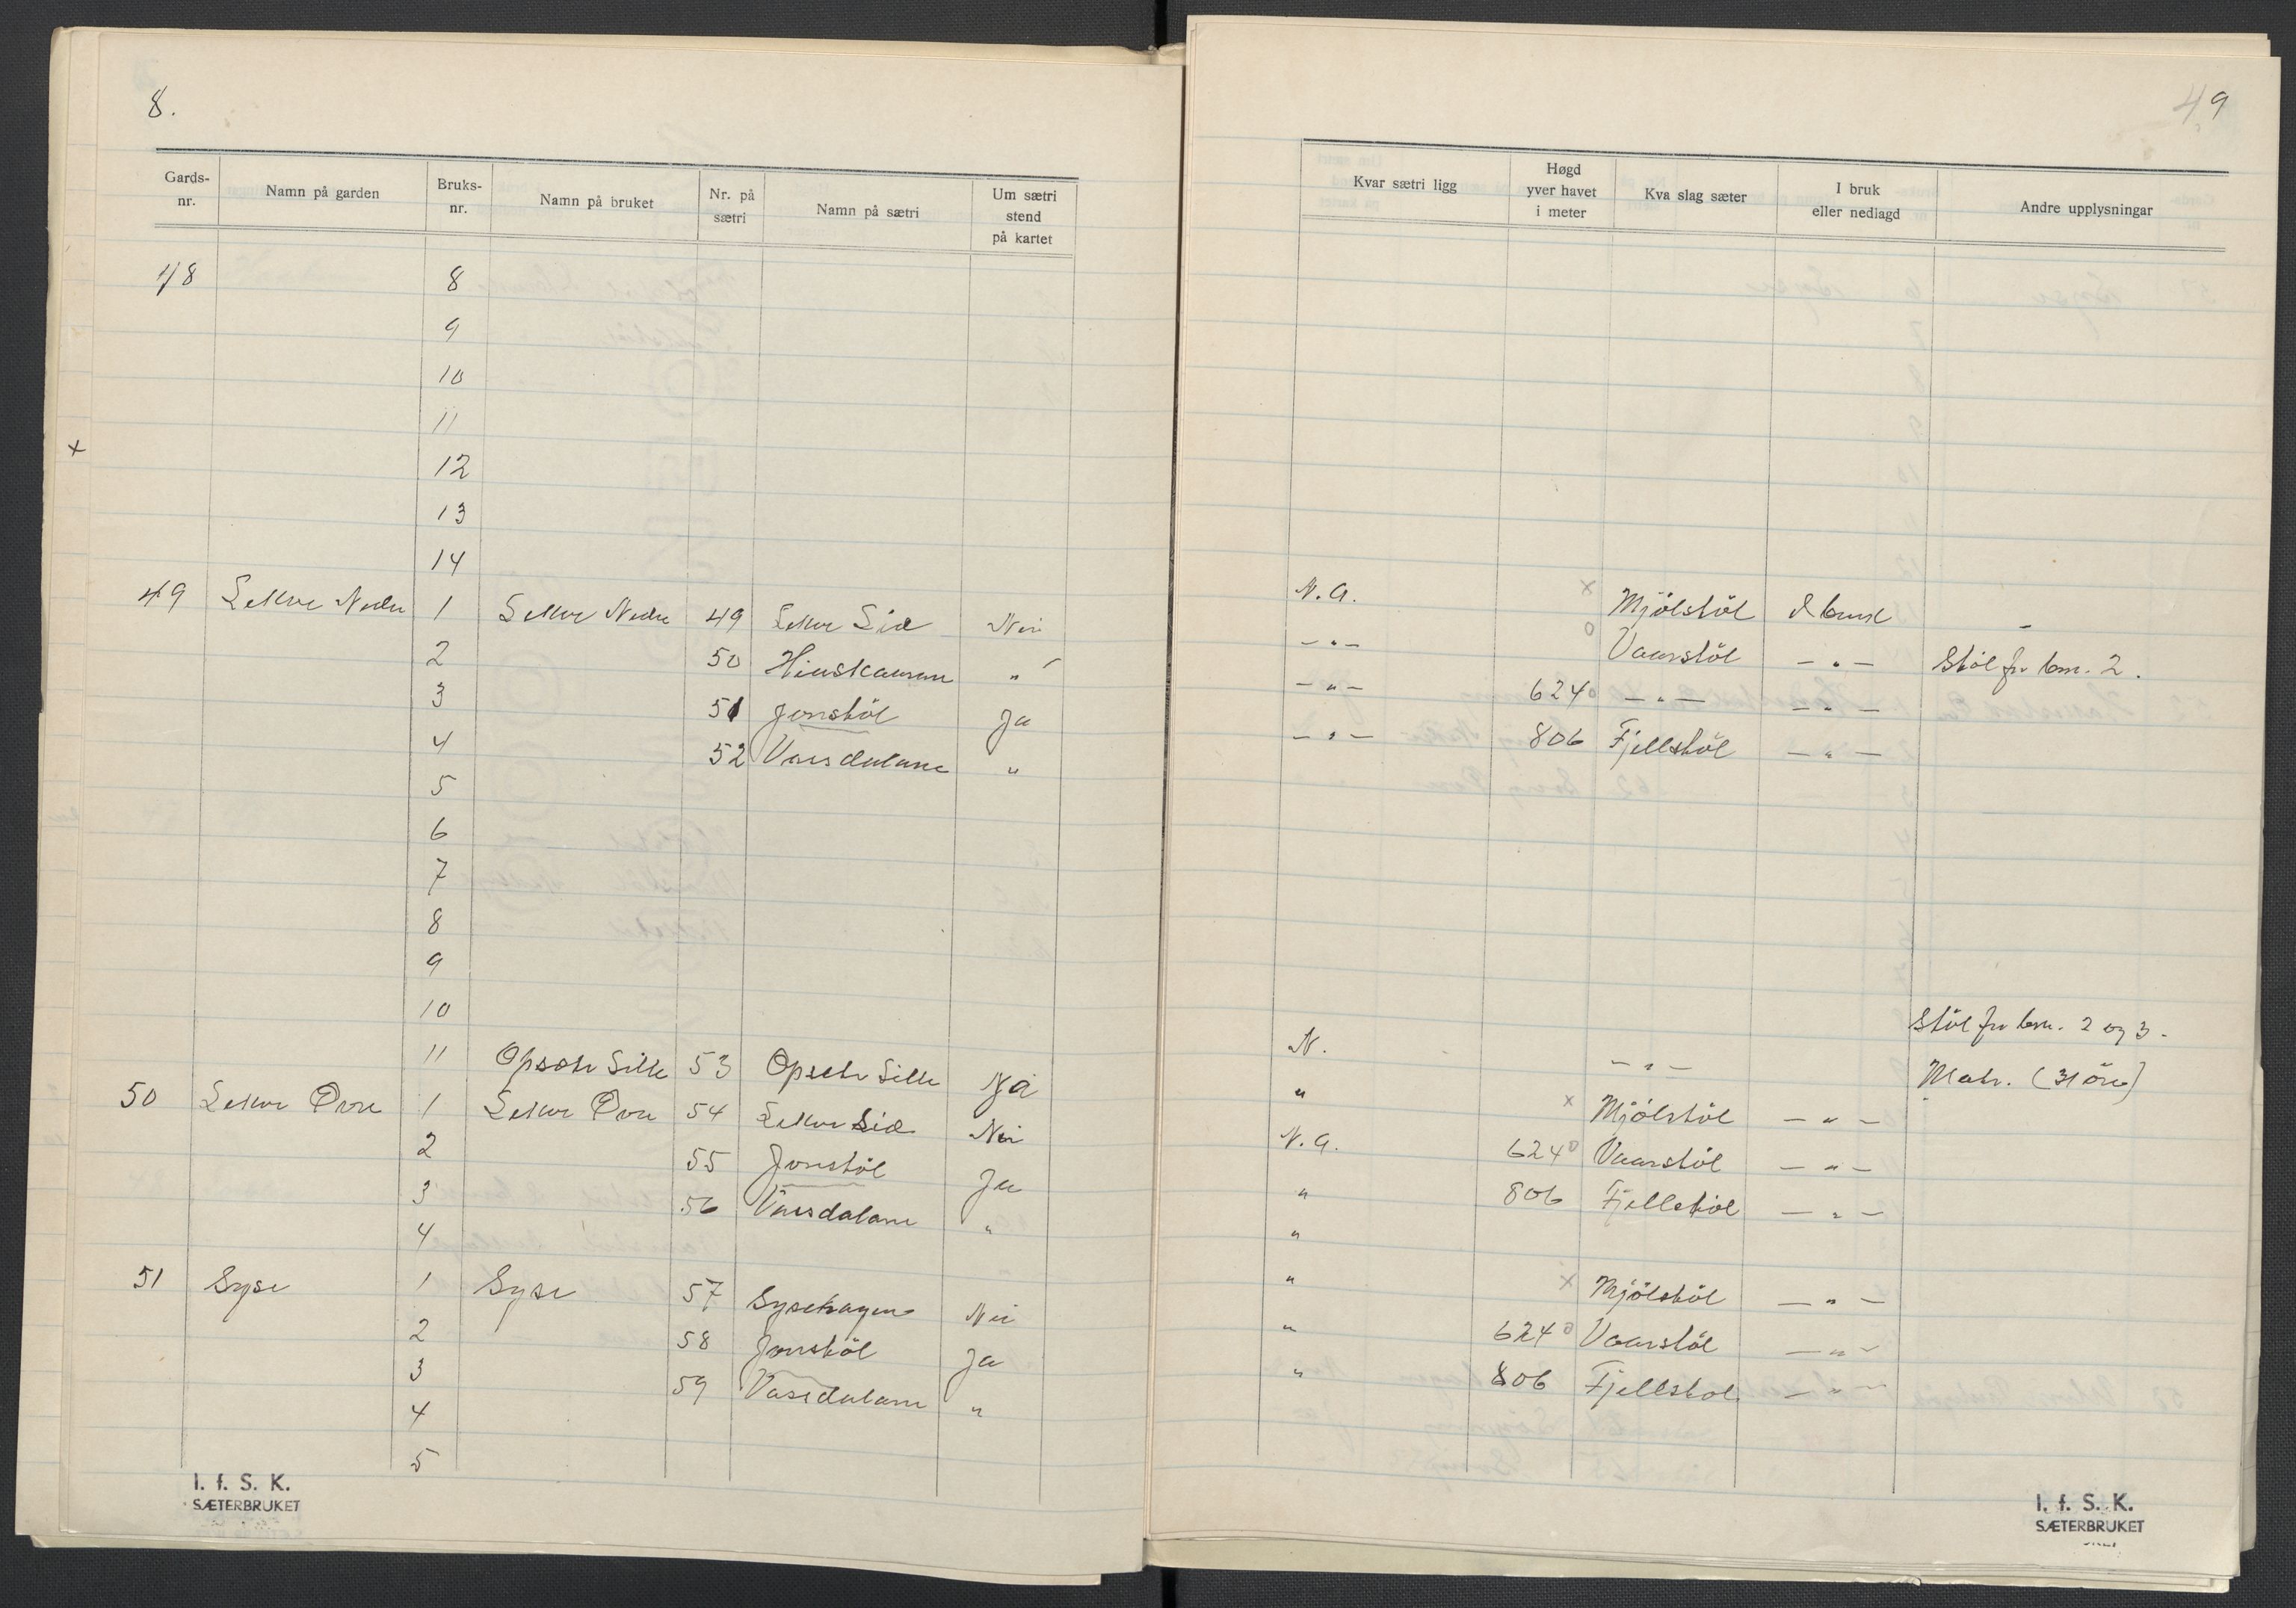 8.
Gards-nr. Namn på garden Bruks-nr. Namn på bruket Nr. på sætri Namn på sætri Um sætri stend på kartet
48 8
9
10
11
12
13
14
49 Lekve Nedre 1 Lekve Nedre 49 Lekve Lid Nei
2 50 "
3 51 Jonstöl Ja
4 52 "
5
6
7
8
9
10
11 53
50 Lekve Øvre 1 Lekve Øvre 54 Lekve Lid Nei
2 55 Jonstöl Ja
3 56 "
4
51 Syse 1 Syse 57 Sysehagen Nei
2 58 Jonstöl Ja
3 59 "
4
5
I. f. S. K.
SÆTERBRUKET
49
Kvar sætri ligg Høgd yver havet i meter Kva slag sæter I bruk eller nedlagd Andre upplysningar
N.A. x Mjölstöl I bruk
— " — o Vaarstöl — " — Stöl fr bm. 2.
— " — 624 o — " — — " —
— " — 806 Fjellstöl — " —
Stöl fr bm. 2 og 3.
N. — " — Matr. (31 öre)
" x Mjölstöl — " —
N.A. 624 o Vaarstöl — " —
" 806 Fjellstöl — " —
"
" x Mjölstöl — " —
" 624 o Vaarstöl — " —
" 806 Fjellstöl — " —
I. f. S. K.
SÆTERBRUKET